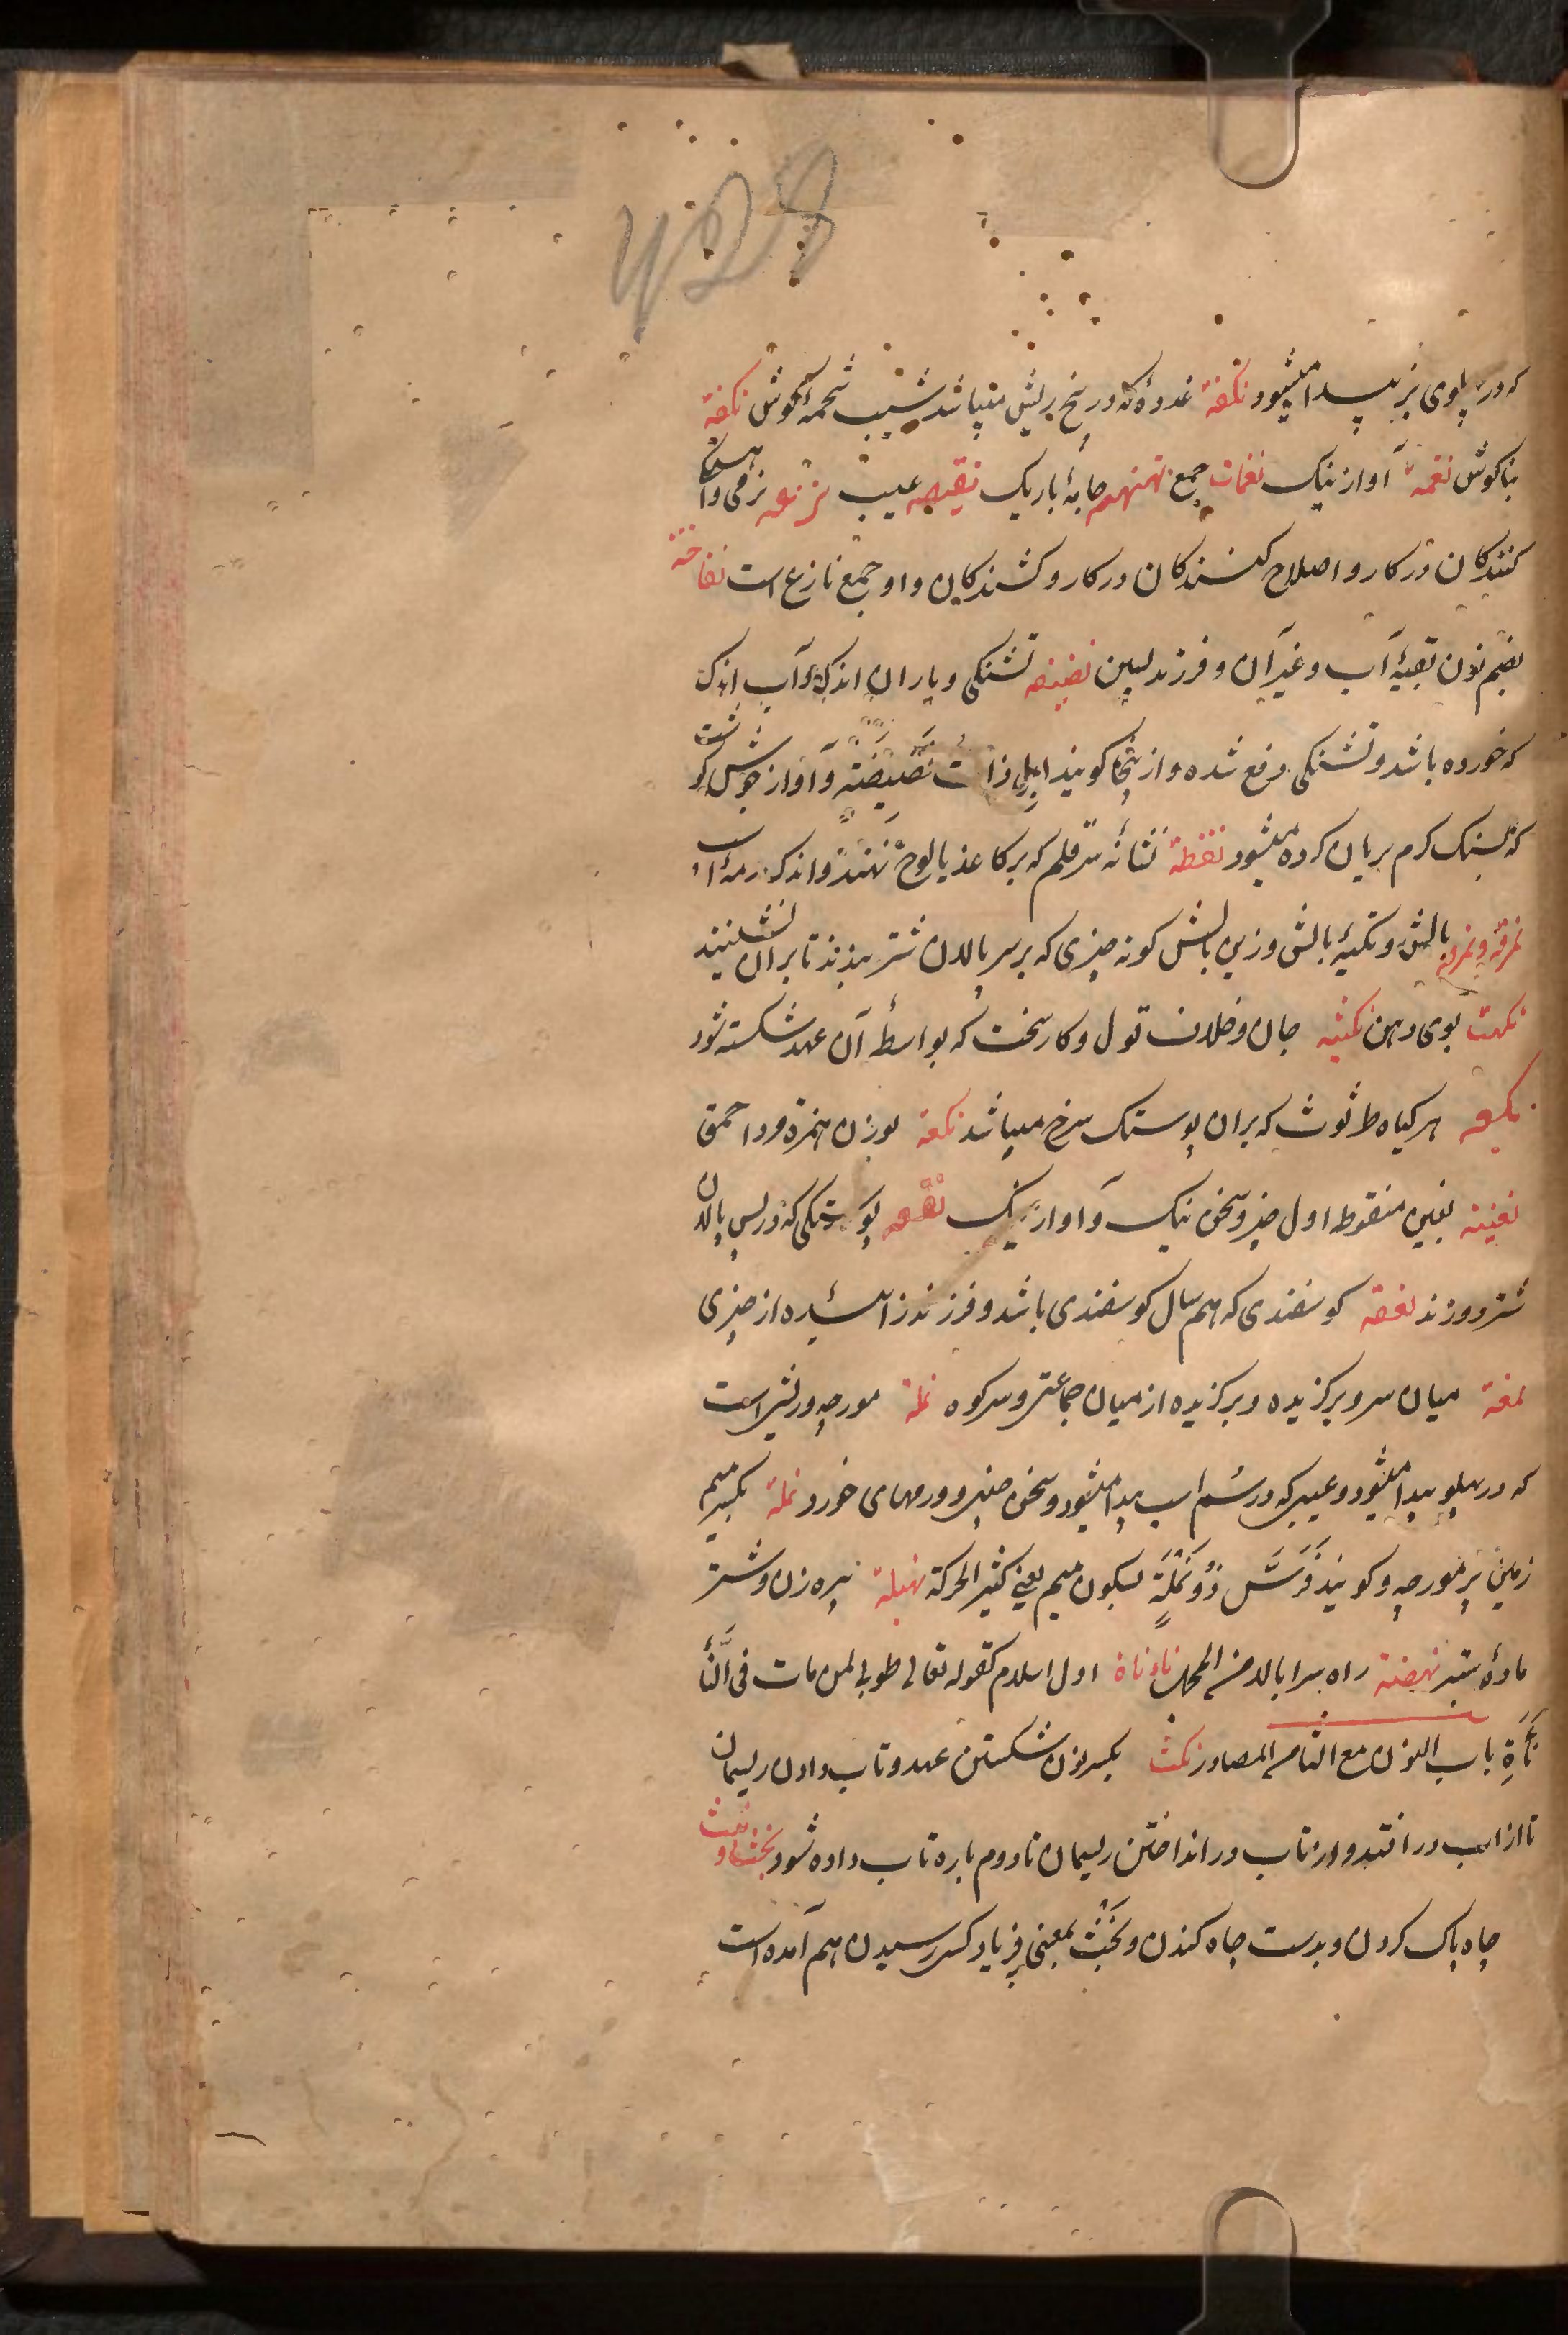 که در پلوی بز پیدا میشود نکفة غدوهٔ که در بیخ ریش میباشد شیب شحمهٔ گوش نکفة
بناکوش نغمة آواز نیک نغمات جمع نهنهه جامهٔ باریک نقیصه عیب نزعه نرمی و آهستگی
کنندکان در کار و اصلاح کنندکان در کار و کشندکان و او جمع نازع است
بضم نون بقیهٔ آب و غیر آن و فرزند پسین نضیضه تشنکی و باران اندک و آب اندک
که خورده باشد و تشنکی رفع شده و از ینجا کویند ابل ذات نضیضة و آواز جوش کوشت
که بسنک کرم بریان کرده میشود نقطة نشانهٔ سر قلم که بر کاغذ یا لوح نهند و اندک
نمرقه و نمرق بالش و تکیهٔ بالش و زین بالش کونه چیزی که بر سر پالان شتر نهند تا بران نشینند
نکهت بوی دهن نکثیه جان و خلاف قول و کار سخت که بواسطهٔ آن عهد شکسته شود
نکعه هر کیاه طرثوث که بران پوستک سرخ میباشد نکعة بوزن همزة مرد احمق
نغیة بغین منقوطه اول خبر و سخن نیک و آواز نیک پوستکی که در پس پالان
شتر دوزند نعقة کوسفندی که هم سال کوسفندی باشد و فرزند زاسیده از چیزی
نمغة میان سر و برکزیده و برکزیده از میان جماعتی و سر کوه نملة مورچه و ریش است
که در پهلو پیدا میشود و عیبی که در سم اسب پیدا میشود و سخن چینی و ورمهای خورد نملة بکسر میم
زمین پر مورچه و کویند فرس ذو نملة بسکون میم یعنی کثیر الحرکة نهبلة پیره زن و شتر
مادهٔ ستبر نهضة راه سرا بالا من المحل نأنأة اول اسلام کقوله تعالی طوبی لمن مات فی النأ
نأة باب النون مع الثاء من المصادر نکث بکسر نون شکستن عهد و تاب دادن ریسمان
تا از تاب در افتد و از تاب در انداختن ریسمان تا دوم باره تاب داده شود
چاه پاک کردن و بدست چاه کندن و نجث بمعنی فریاد کسی رسیدن هم آمده است